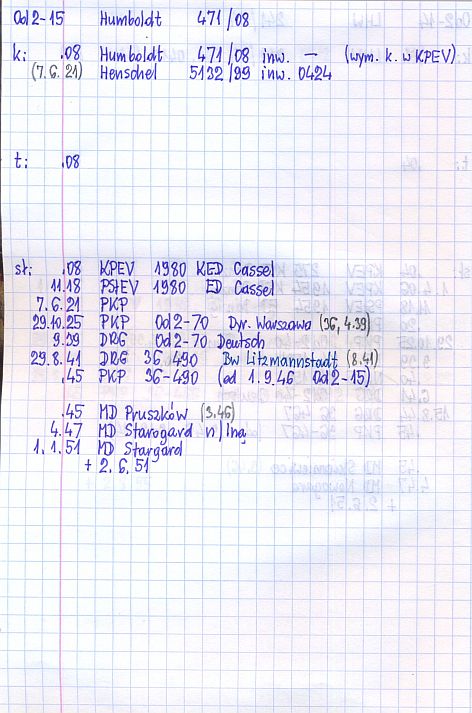 Od2-15 Humboldt 471/08
k: .08 Humboldt 471/08 inw. — (wym. k. w KPEV)
(7.6.21) Henschel 5132/99 inw. 0424
t: .08
st: .08 KPEV 1980 KED Cassel
11.18 PStEV 1980 ED Cassel
7.6.21 PKP
29.10.25 PKP Od2-70 Dyr. Warszawa (36, 4.39)
9.39 DRG Od2-70 Deutsch
29.8.41 DRG 36 490 Bw Litzmannstadt (8.41)
.45 PKP 36-490 (od 1.9.46 Od2-15)
.45 MD Pruszków (3.46)
4.47 MD Starogard n/Iną
1.1.51 MD Stargard
+ 2.6.51